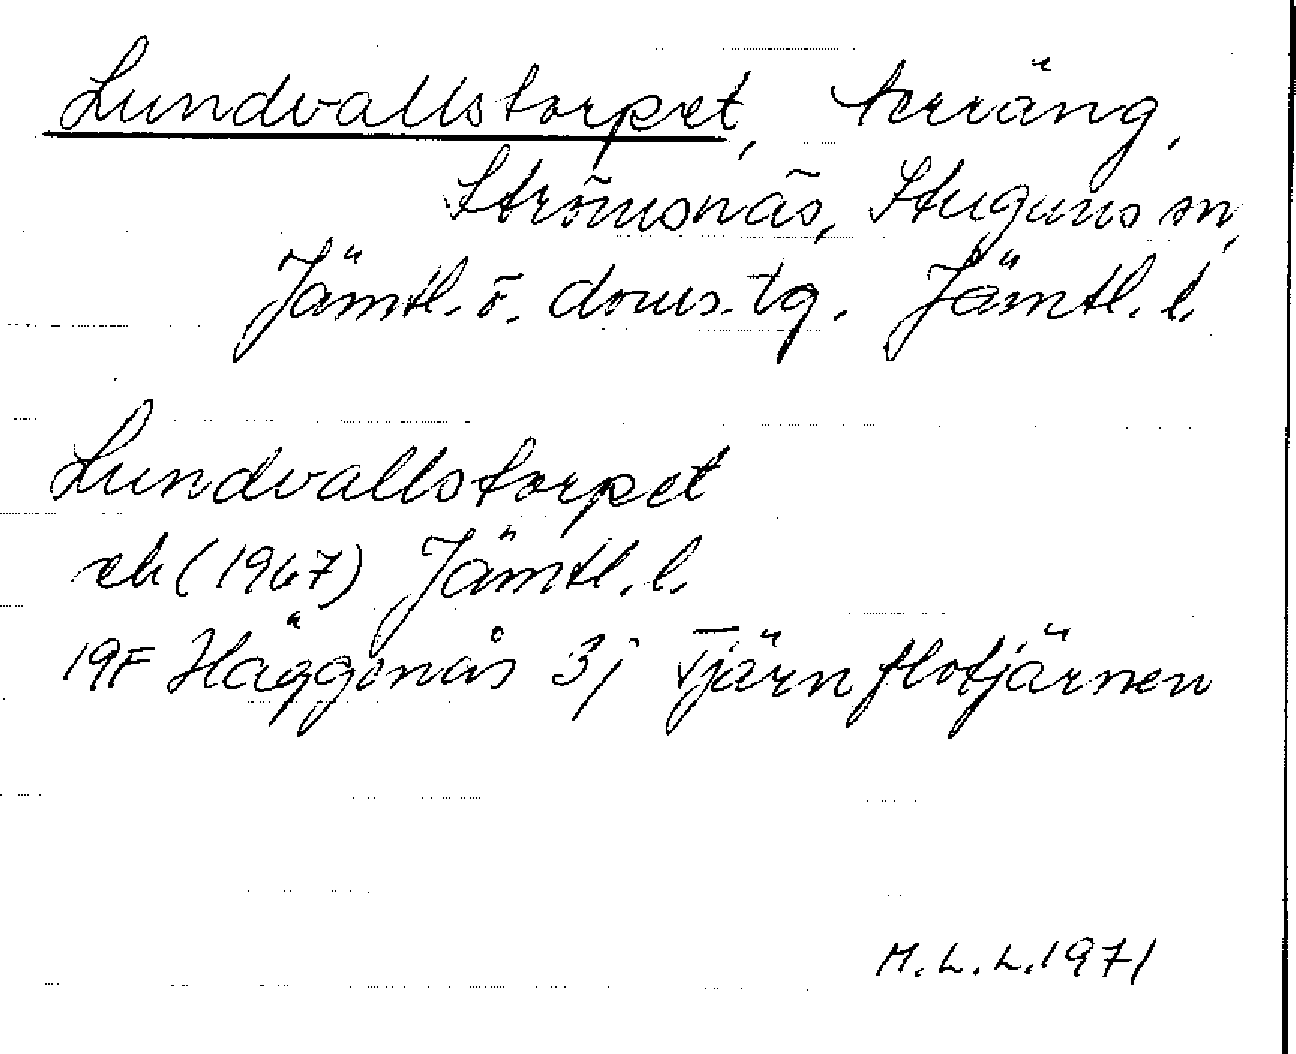 Lundvallstorpet, terräng,
Strömsnäs, Stuguns sn,
Jämtl. ö. doms. tg. Jämtl. l.
Lundvallstorpet
ek (1967) Jämtl. l.
19F Häggenås 3j Tjärnflotjärnen
M.L.L. 1971